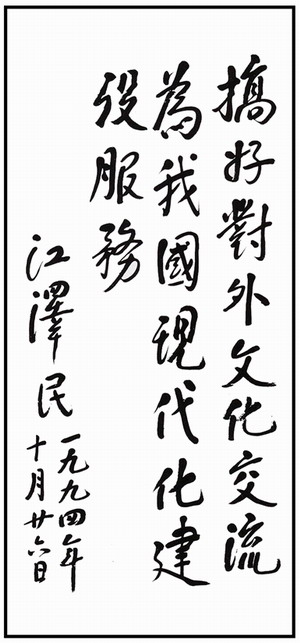 搞好對外文化交流
為我國現代化建
设服務
江澤民
一九九四年
十月廿六日